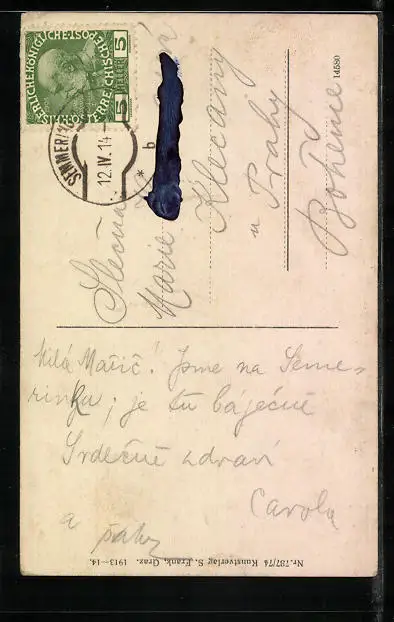 KAISERLICHE KÖNIGLICHE ÖSTERREICHISCHE POST
5 5
SEMMERING
12.IV.14
* b
Slečna
Marie
Klecany
u Prahy
Bohême
14580
Milá Mařič! Jsme na Seme-
rinku, je tu báječně
Srdečné zdraví
Carola
a
Nr. 787/74 Kunstverlag S. Frank, Graz. 1913—14.